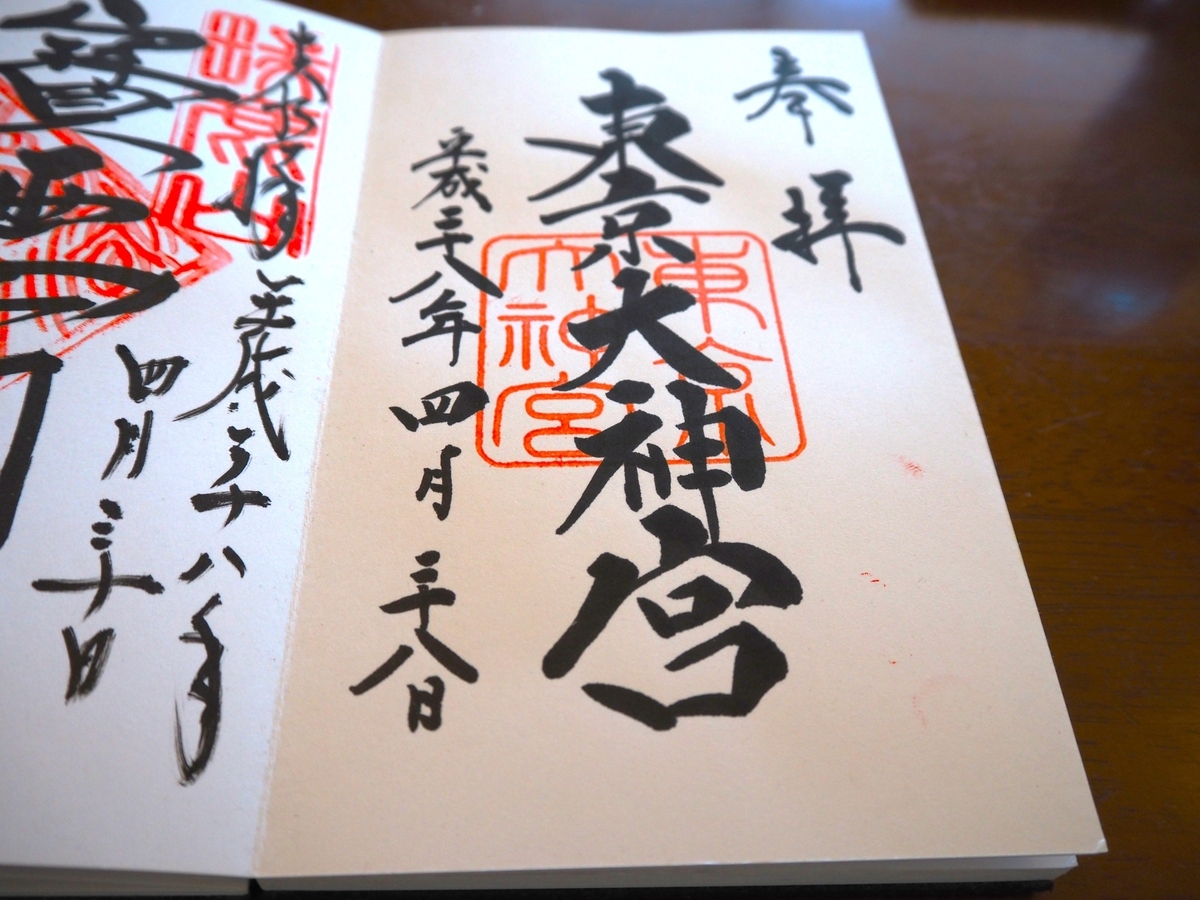 奉拝
東京大神宮
東京
大神宮
平成二十八年四月二十八日
平成二十八年
四月三十日